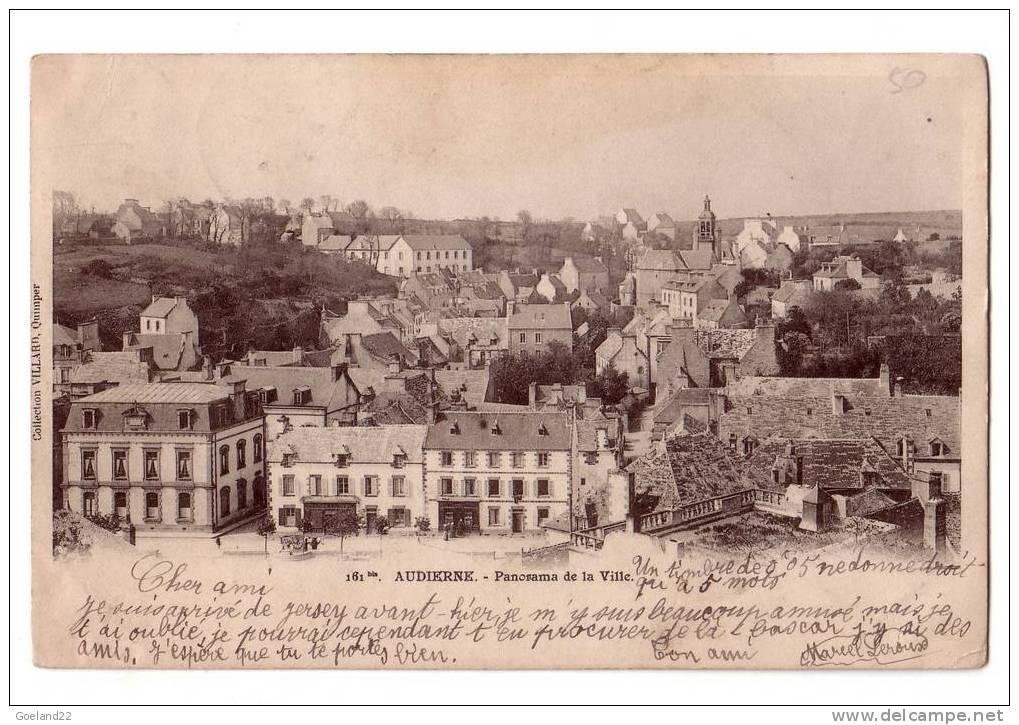 50
Collection VILLARD, Quimper
161 bis. AUDIERNE. - Panorama de la Ville.
Un timbre de 0.05 ne donne droit
qu'à 5 mots
Cher ami
Je suis arrivé de Jersey avant-hier, je m'y suis beaucoup amusé mais je
t'ai oublié, je pourrai cependant t'en procurer de là J'y ai des
amis. J'espère que tu te portes bien. Ton ami Marcel Leroux
Goeland22
www.delcampe.net